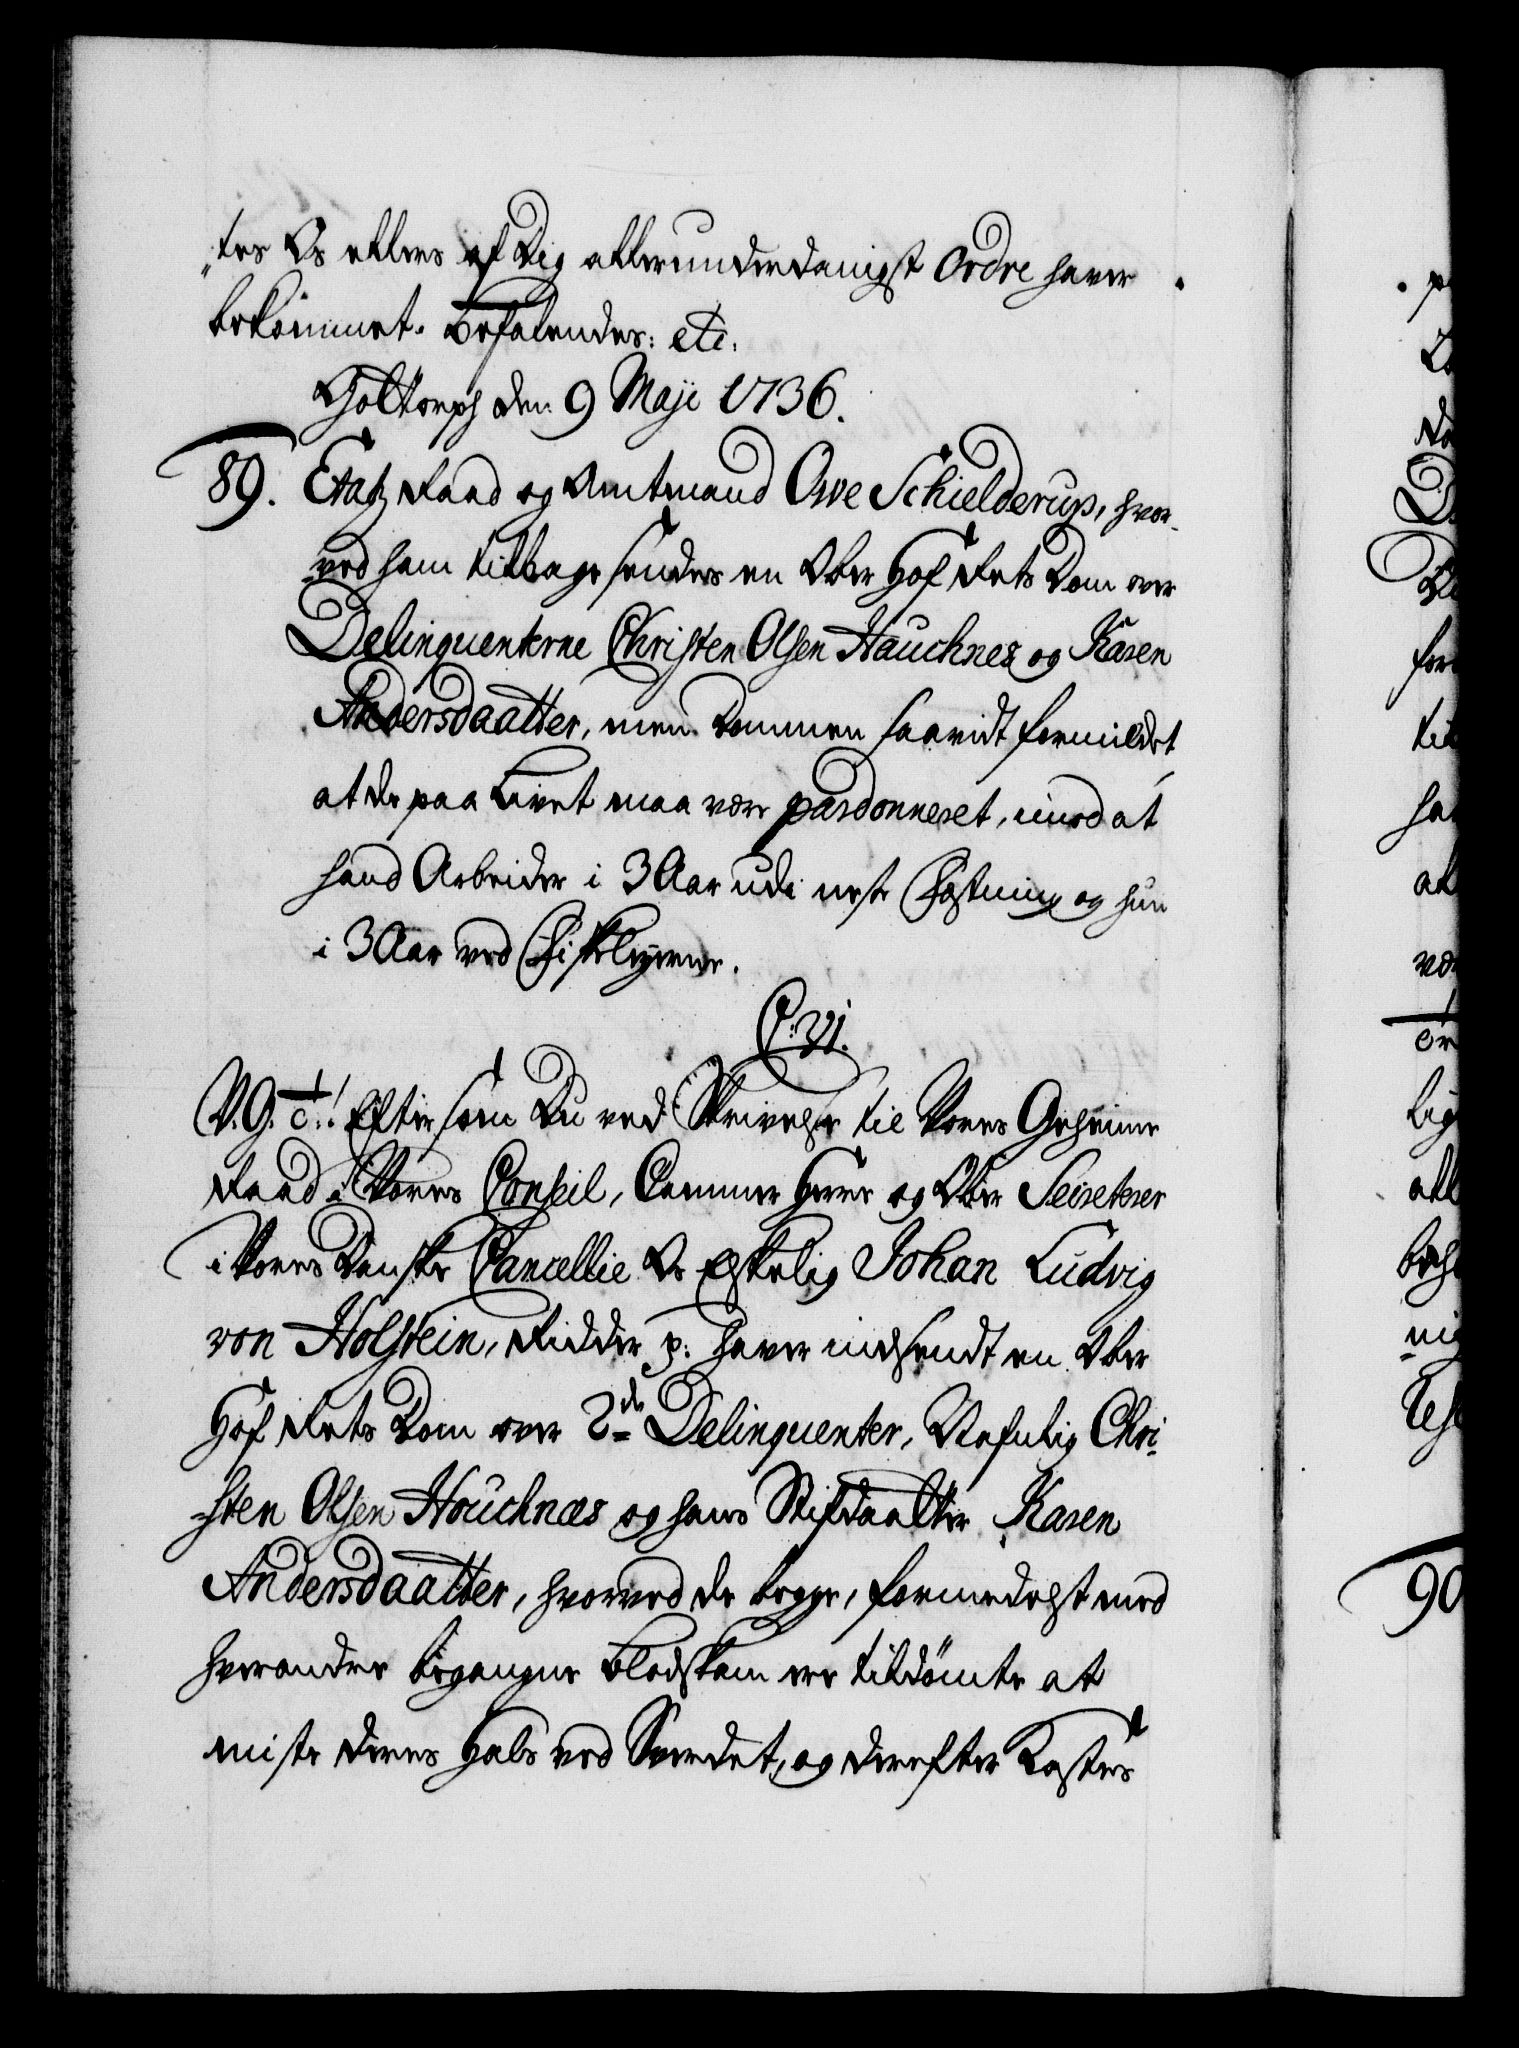 „ter Os ellers af Dig allerunderdanigst Ordre haver
bekommet. Befalendes: etc.
Gottorph den 9 Maji 1736.
89. Etatz Raad og Amtmand Owe Schielderup, hvor-
ved ham tilbage sendes en Ober Hof Rets Dom over
Delinquenterne Christen Olsen Hauchnes og Karen
Andersdaatter, men Dommen saavidt formildet
at de paa Livet maa være pardonneret, imod at
hand Arbeider i 3 Aar udi neste Fæstning og hun
i 3 Aar ved Fiskeleyerne.
C. VI.
V. G. T.! Eftersom Du ved Skrivelse til Vores Geheime
Raad i Vores Conseil, Cammer Herre og Ober Secreterer
i Vores Danske Cancellie Os Elskelig Johan Ludvig
von Holstein, Ridder p: haver indsendt en Ober
Hof Rets Dom over 2de Delinquenter, Nafnlig Chri-
sten Olsen Houchnæs og hans Stifdaatter Karen
Andersdaatter, hvorved de begge, formedelst med
hverandre begangne Blodskam ere tildömte at
miste deres Hals ved Sverdet, og derefter Kastes
90